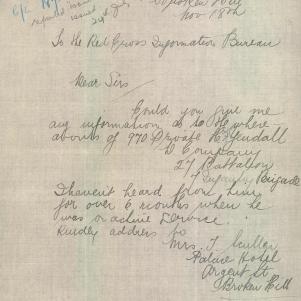 Nov 18th
To the Red Cross Information Bureau
Dear Sirs
Could you give me
any information as to the where
abouts of 970 Private
D Company
27 Battalion
7 Infantry Brigade
I havent heard from him
for over 6 months when he
was on active service.
Kindly address to
Mrs. J
Palace Hotel
Argent St
Broken Hill